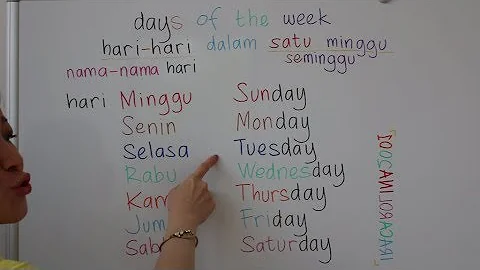 days of the week
hari-hari dalam satu minggu
seminggu
nama-nama hari
hari Minggu Sunday
Senin Monday
Selasa Tuesday
Rabu Wednesday
Kam Thursday
Jum Friday
Sab Saturday